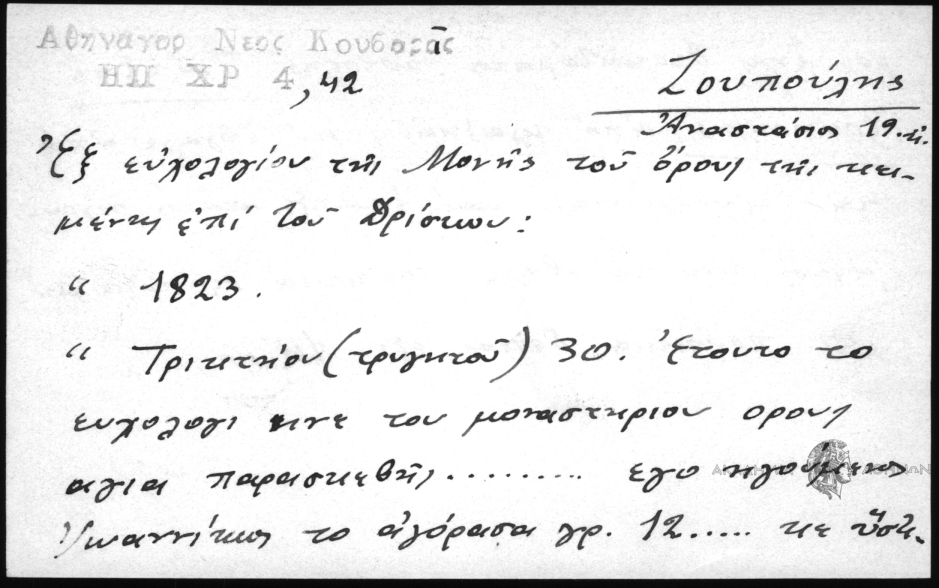 Αθηναγορ Νεος Κουβαρᾶς
ΗΠ ΧΡ 4, 42
Ζουπούλης
Ἀναστάσιος 19. ἱ.
Ἐξ εὐχολογίου τῆς Μονῆς τοῦ ὄρους τῆς κει-
μένης ἐπί τοῦ Δρίσκου:
" 1823.
" Τρικτηίου (τρυγητοῦ) 30. Ἐτουτο το
ευχολογι κινε του μοναστηριου ορους
αγιας παρασκεβῆς ......... εγο ηγούμενος
Ἰωαννίκιος το ἀγόρασα γρ. 12..... κε ὕστε-